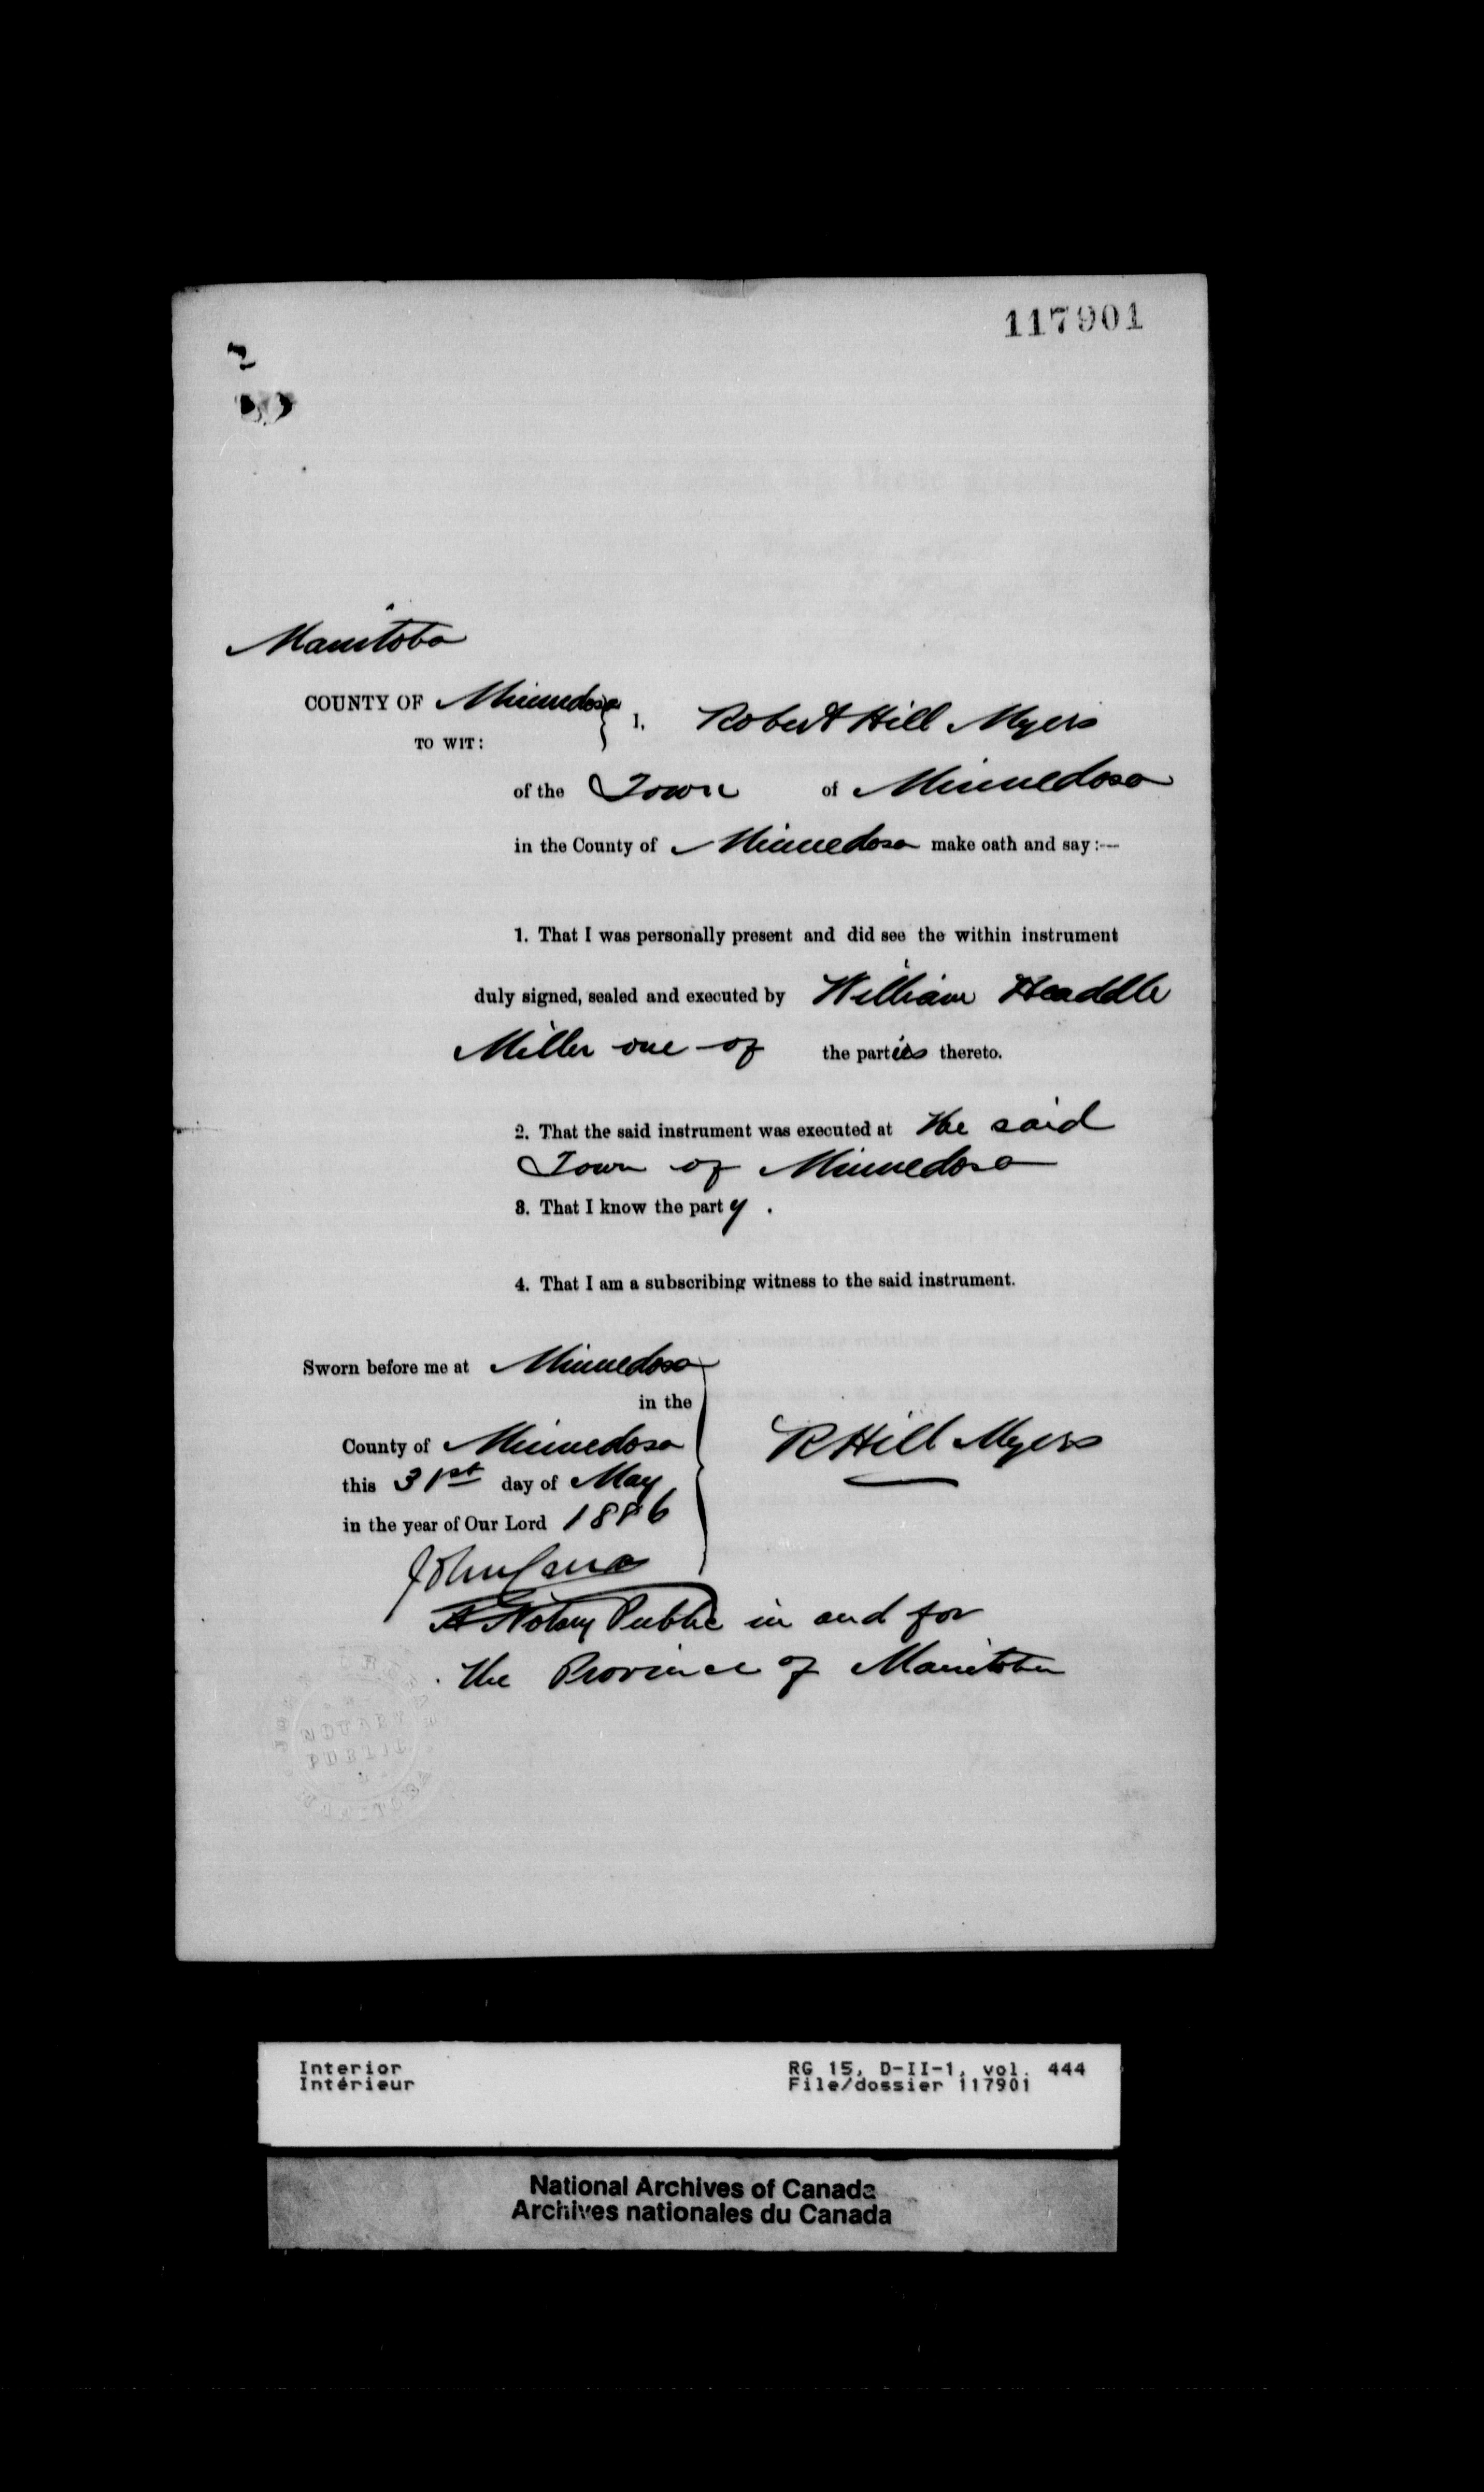 117901
2
Manitoba
COUNTY OF Minnedosa
TO WIT:
I, Robert Hill Myers
of the Town of Minnedosa
in the County of Minnedosa make oath and say:—
1. That I was personally present and did see the within instrument
duly signed, sealed and executed by William Headdle
Miller one of the parties thereto.
2. That the said instrument was executed at the said
Town of Minnedosa
3. That I know the party .
4. That I am a subscribing witness to the said instrument.
Sworn before me at Minnedosa
in the
County of Minnedosa
this 31st day of May
in the year of Our Lord 1886
R Hill Myers
John
A Notary Public in and for
the Province of Manitoba
NOTARY
PUBLIC
MANITOBA
Interior
Intérieur
RG 15, D-II-1, vol. 444
File/dossier 117901
National Archives of Canada
Archives nationales du Canada